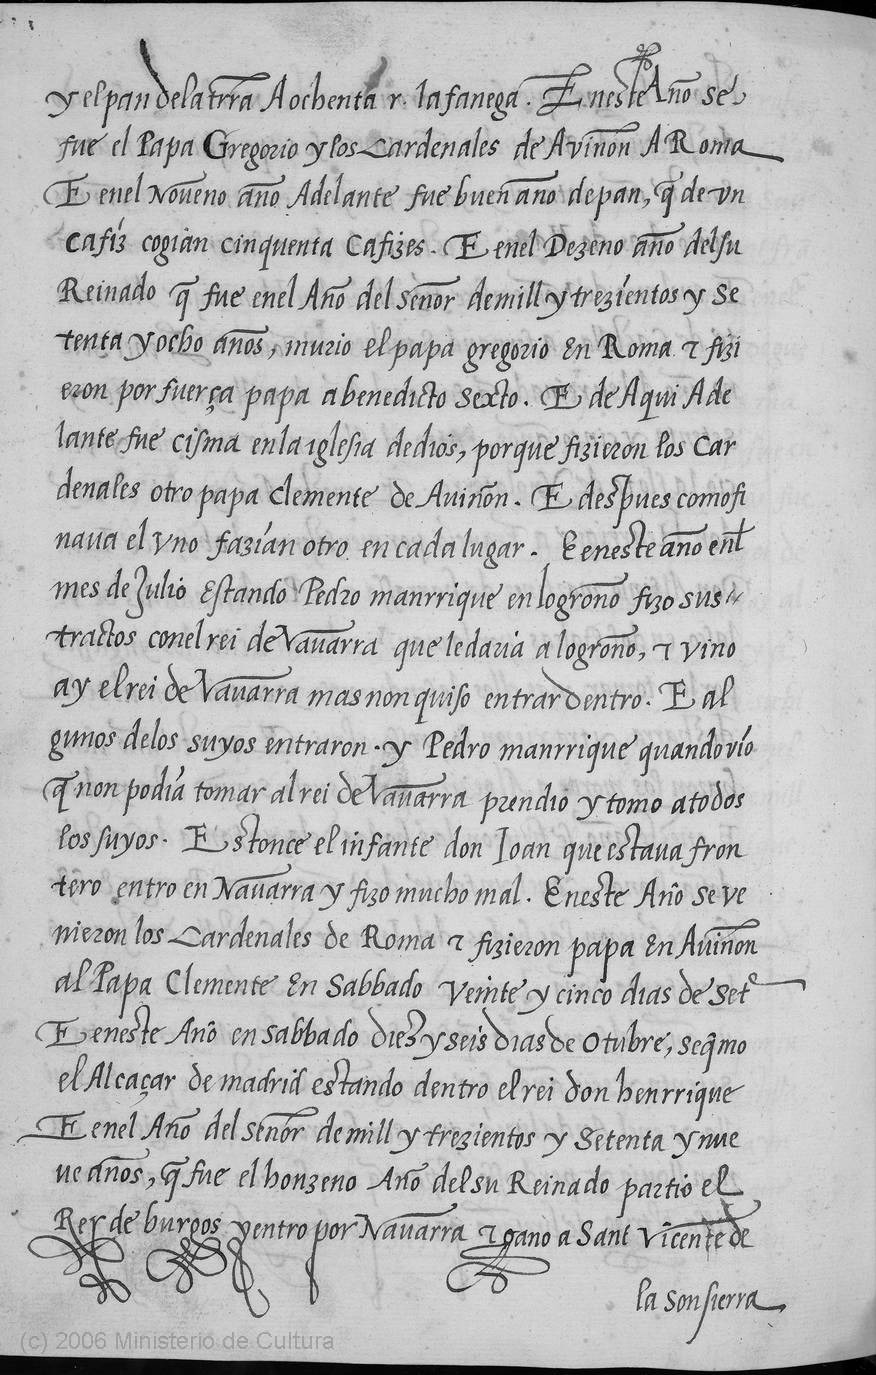 y el pan dela trra A ochenta r. la fanega. En este Año se
fue el Papa Gregorio y los Cardenales de Aviñon A Roma
E enel Noueno año Adelante fue buen año de pan, q̃ de vn
cafiz cogian cinquenta Cafizes. E enel Dezeno año del su
Reinado q̃ fue enel Año del señor de mill y trezientos y se
tenta y ocho años, murio el papa gregorio En Roma ⁊ fizi
eron por fuerça papa a benedicto sexto. E de Aqui Ade
lante fue cisma en la iglesia de dios, porque fizieron los Car
denales otro papa Clemente de Auiñon. E despues como fi
naua el vno fazian otro en cada lugar. E en este año enl
mes de Julio Estando Pedro manrrique en logroño fizo sus
tractos con el rei de Nauarra que le daria a logroño, ⁊ vino
ay el rei de Nauarra mas non quiso entrar dentro. E al
gunos delos suyos entraron. y Pedro manrrique quando vio
q̃ non podia tomar al rei de Nauarra prendio y tomo a todos
los suyos. Estonce el infante don Ioan que estaua fron
tero entro en Nauarra y fizo mucho mal. En este Año se ve
nieron los Cardenales de Roma ⁊ fizieron papa En Auiñon
al Papa Clemente En Sabbado Veinte y cinco dias de Sete
E en este Año en sabbado diez y seis dias de Otubre, se q̃mo
el Alcaçar de madrid estando dentro el rei don henrrique
E enel Año del señor de mill y trezientos y Setenta y nue
ue años, q̃ fue el honzeno Año del su Reinado partio el
Rey de burgos y entro por Nauarra ⁊ gano a Sant Vicente de
la sonsierra
(c) 2006 Ministerio de Cultura